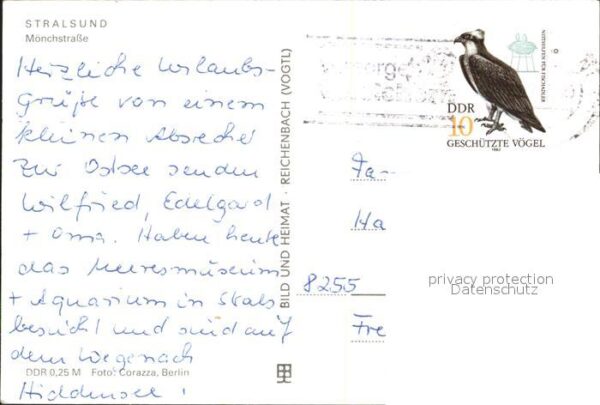 STRALSUND
Mönchstraße
Herzliche Urlaubs-
grüße von einem
kleinen Abstecher
zur Ostsee senden
Wilfried, Edelgard
+ Oma. Haben heute
das Meeresmuseum
+ Aquarium in Strals
besucht und sind auf
dem Wege nach
Hiddensee!
DDR 0,25 M Foto: Corazza, Berlin
BILD UND HEIMAT · REICHENBACH (VOGTL)
NISTHILFEN FÜR FISCHADLER
DDR
10
GESCHÜTZTE VÖGEL
1982
Fa-
Ha
8255
Fre
privacy protection
Datenschutz